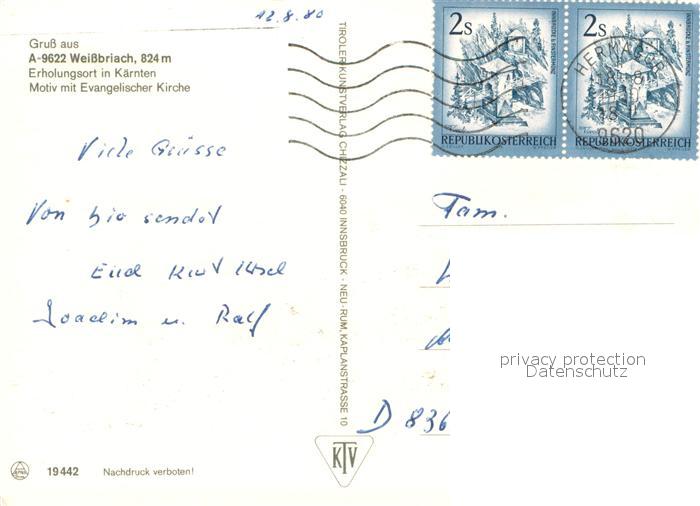 12.8.80
Gruß aus
A-9622 Weißbriach, 824 m
Erholungsort in Kärnten
Motiv mit Evangelischer Kirche
Viele Grüsse
Von hier sendet
Euch Kurt
Joachim u. Ralf
19 442 Nachdruck verboten!
TIROLER KUNSTVERLAG CHIZZALI · 6040 INNSBRUCK - NEU-RUM, KAPLANSTRASSE 10
KTV
2s
REPUBLIK ÖSTERREICH
2s
REPUBLIK ÖSTERREICH
HERMAGOR
9620
Fam.
D 836
privacy protection
Datenschutz